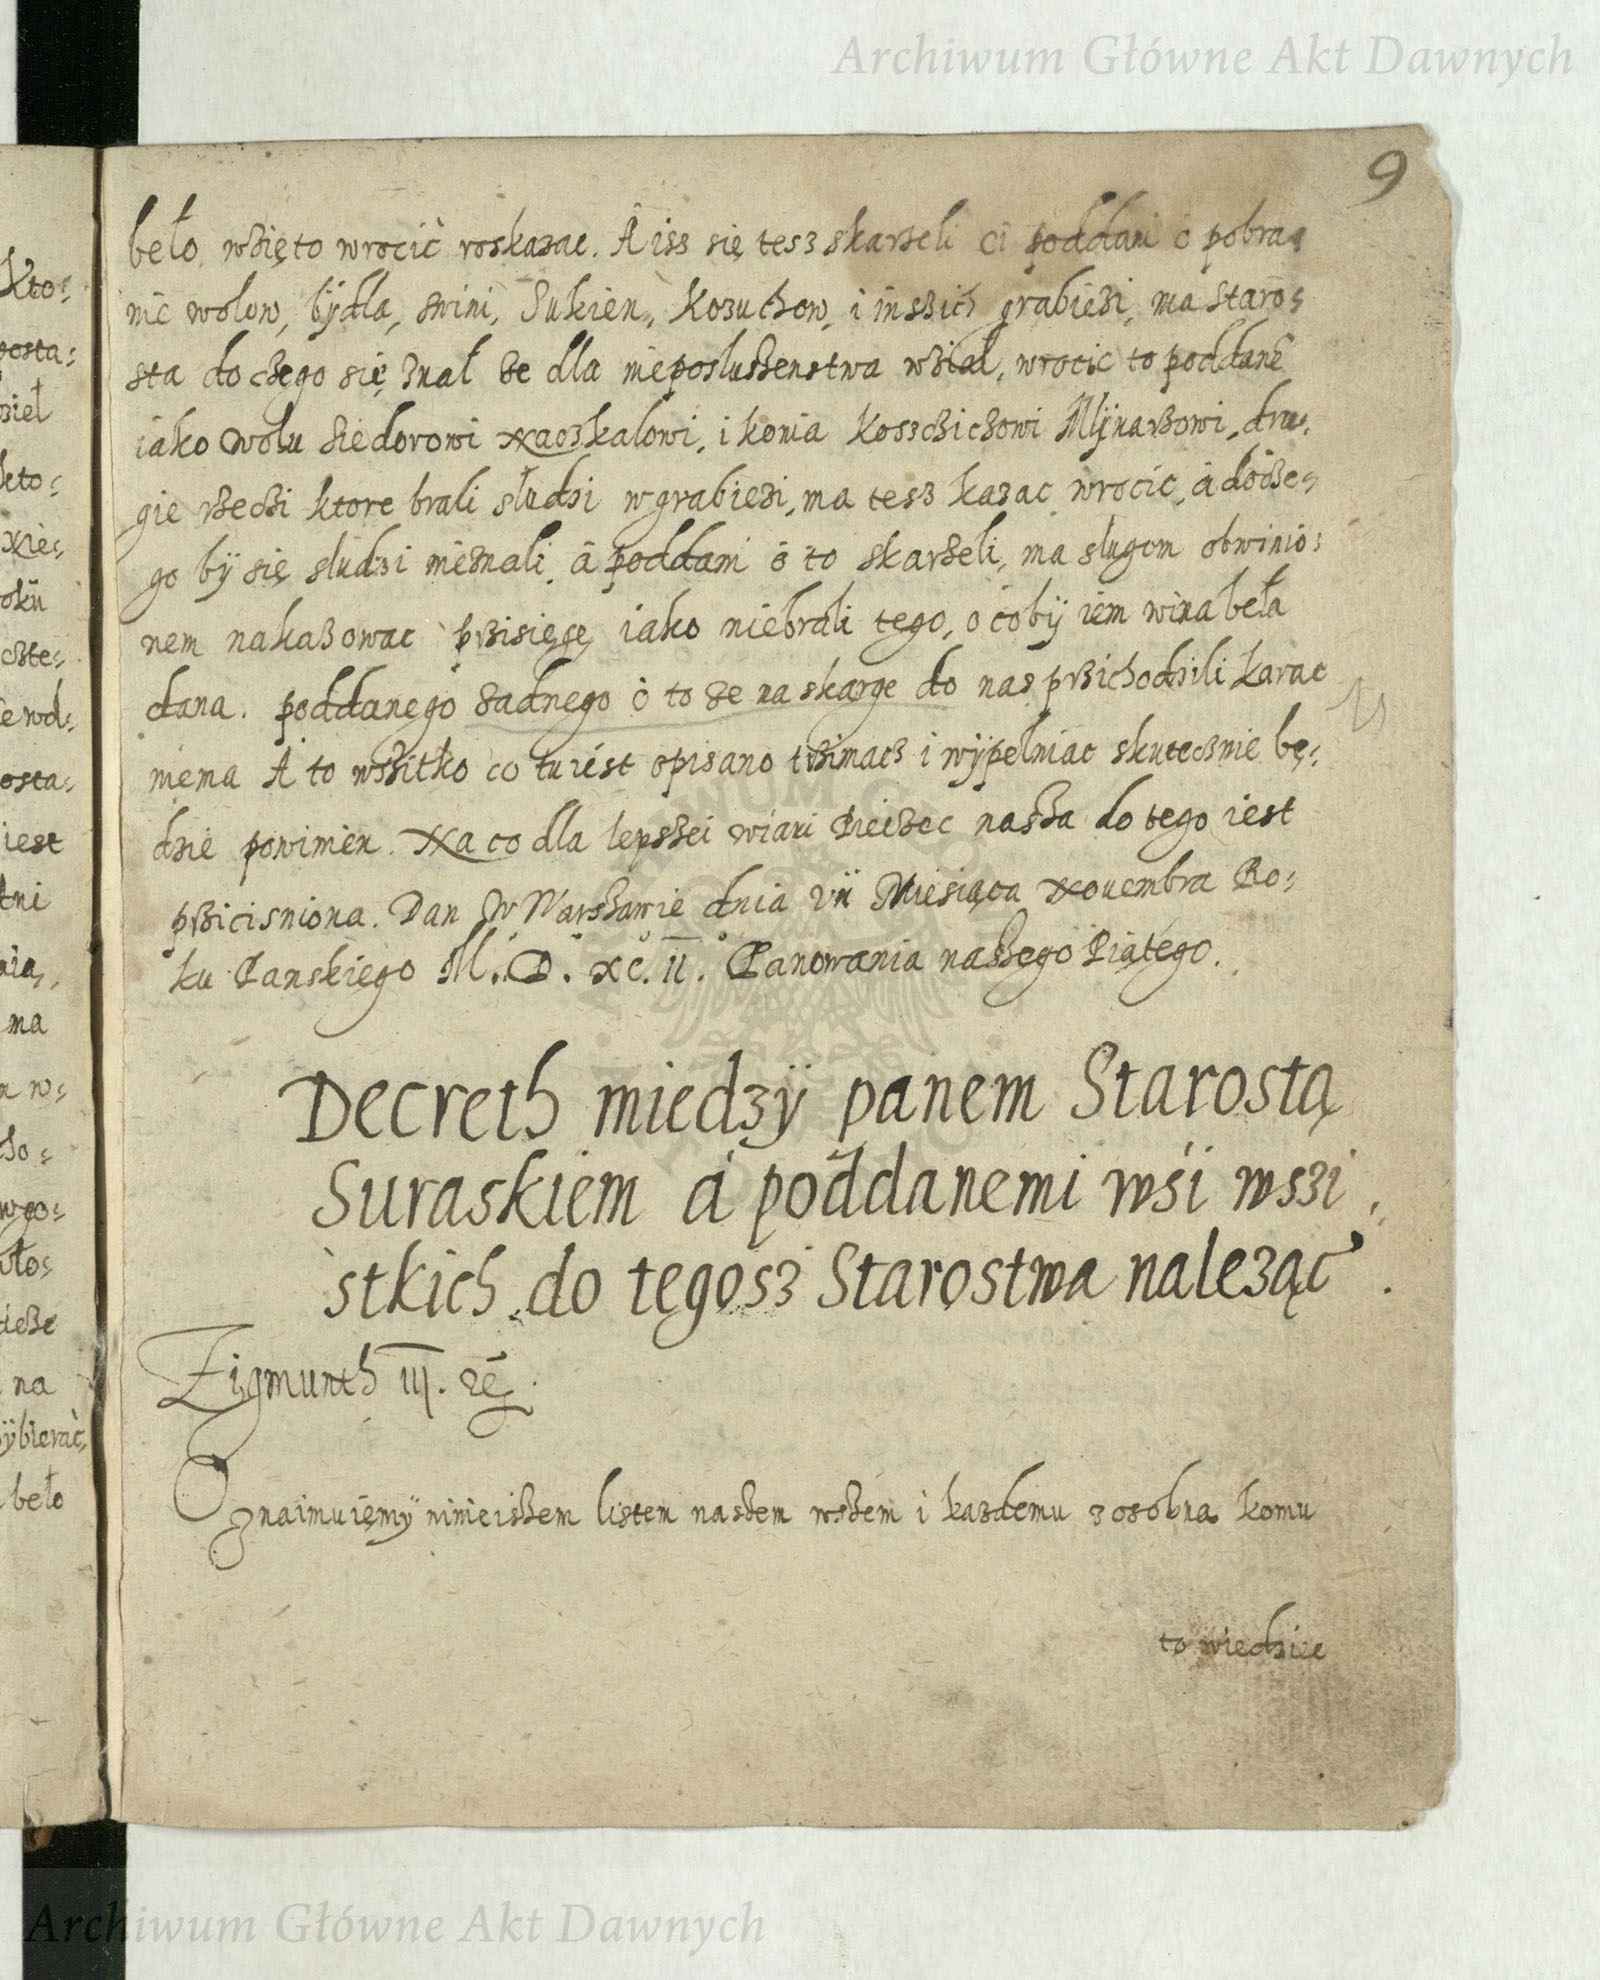 Archiwum Główne Akt Dawnych
9
beło wzięto wrocić roskazac. A isz się tesz skarzeli ci poddani o pobra=
nie wołow, bÿdła, swini, Sukien, Kozuchow, i inszich grabiezi, ma staro=
sta do czego się znał ze dla nieposłuszenstwa wział, wrocic to poddane
iako wołu Siedorowi Naoszkalowi, i konia Koszczichowi Młÿnarzowi, dru=
gie rzeczi ktore brali słudzi w grabiezi, ma tesz kazac wrocic, a do cze=
go bÿ się słudzi nieznali, a poddani o to skarzeli, ma sługom obwinio=
nem nakazowac przisięgę iako niebrali tego, o co bÿ iem wina beła
dana. poddanego zadnego o to ze na skargę do nas przichodzili karac
niema A to wszitko co tu iest opisano trzimacz i wÿpełniac skutecznie bę=
dzie powinien. Na co dla lepszei wiari Pieczec nasza do tego iest
przicisniona. Dan W Warszawie dnia vii Miesiąca Nouembra Ro=
ku Panskiego M.D.xc.ii. Panowania naszego Piątego.
Decreth miedzÿ panem Starostą
Suraskiem á poddanemi wśi wszi
stkich do tegosz Starostwa naleząc
Zigmunth III. re.
Oznaimuięmÿ ninieiszem listem naszem wszem i kazdemu zosobna komu
to wiedziec
Kto=
posta=
beło
na
iest
ma
ÿbierać,
Archiwum Główne Akt Dawnych